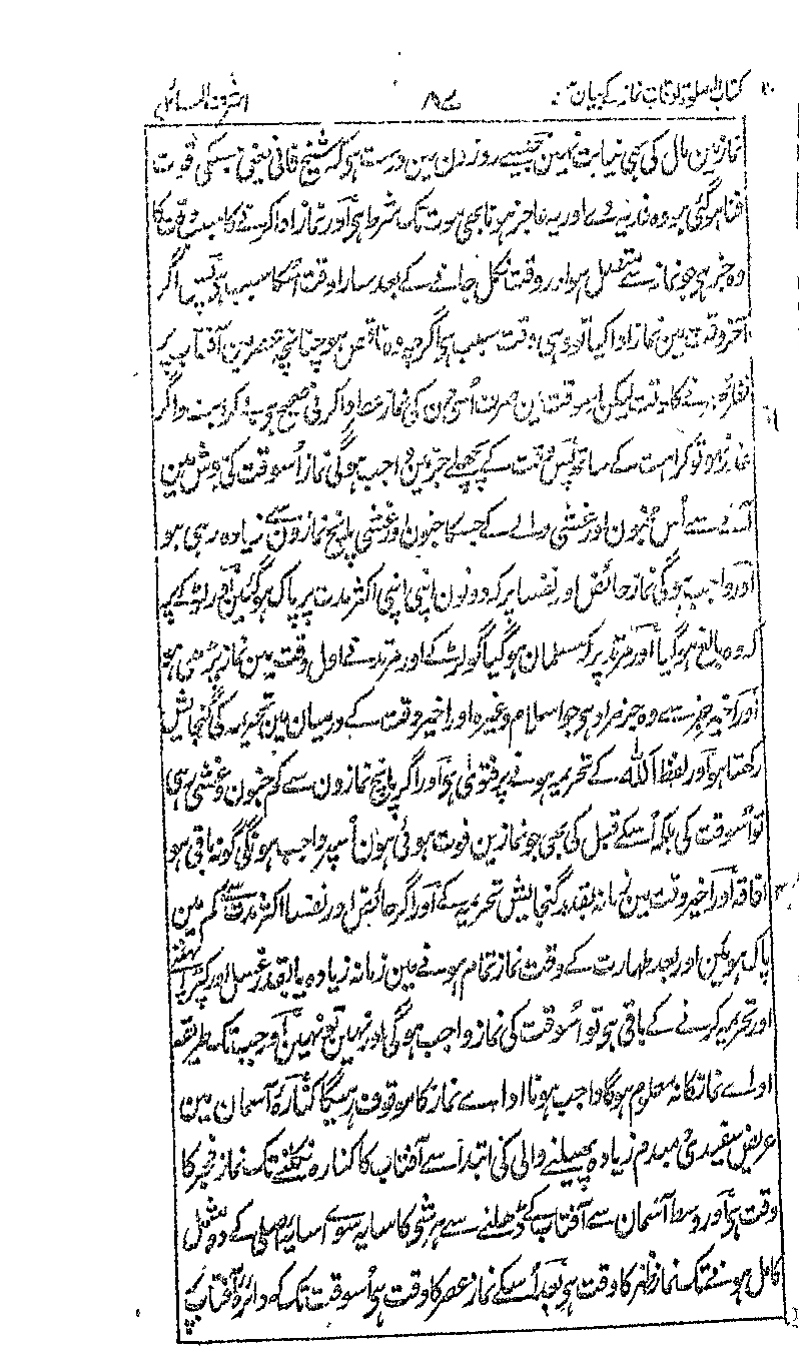 کتاب الصلوۃ اوقات نماز کے بیان ۸۷ اشرف المسائل
نماز مین مال کی بھی نیابت نہین جیسے روزون مین درست ہی کہ شیخ فانی یعنی جسکی قوت
فنا ہو گئی ہو وہ فدیہ دے اور یہ عاجز ہونا بھی موت تک شرط ہی اور نماز ادا کرنے کا سبب وقت کا
وہ جز ہی جو نماز سے متصل ہو اور وقت نکل جانے کے بعد سارا وقت اُسکا سبب ہی پس اگر
آخر وقت مین نماز ادا کیا تو وہی وقت سبب ہی اگرچہ وہ ناقص ہو چنانچہ عصر مین آفتاب پر
کا وقت لیکن اسوقت مین صرف اُسی دن کی نماز عصر ادا کرنی صحیح ہی کراہت واگر
تو کراہت کے ساتھ پس وقت کے پچھلے جز مین واجب ہوگی نماز اُسوقت کی ہوش مین
آنے سے اُس مجنون اور غشی والے کے جسکا جنون اور غشی پانچ نمازون سے زیادہ رہی ہو
اور واجب ہوگی نماز حائض اور نفسا پر کہ دونون اپنی اپنی اکثر مدت پر پاک ہو گئین اور لڑکے پر
کہ وہ بالغ ہو گیا اور مرتد پر کہ مسلمان ہو گیا گو لڑکے اور مرتد نے اول وقت مین نماز پڑھی ہو
اور اخیر جز سے وہ جز مراد ہی جو اسلام وغیرہ اور اخیر وقت کے درمیان مین تحریمہ کی گنجایش
رکھتا ہو اور لفظ اللہ کے تحریمہ ہونے پر فتویٰ ہی اور اگر پانچ نمازون سے کم جنون و غشی رہی
تو اُسوقت کی بلکہ اُسکے قبل کی بھی جو نمازین فوت ہوئی ہون اُسپر واجب ہونگی گو نہ باقی ہو
افاقہ اور اخیر وقت مین زمانہ بقدر گنجایش تحریمہ کے اور اگر حائض اور نفسا اکثر مدت سے کم مین
پاک ہوئین اور بعد طہارت کے وقت نماز تمام ہونے مین زمانہ زیادہ یا بقدر غسل اور کپڑا پہننے
اور تحریمہ کرنے کے باقی ہی تو اُسوقت کی نماز واجب ہوگی اور نہین تو نہین اور جب تک طریقہ
اداے نماز کا نہ معلوم ہوگا واجب ہونا اداے نماز کا موقوف رہیگا کنارۂ آسمان مین
عریض سفیدی مبدم زیادہ پھیلنے والی کی ابتدا سے آفتاب کا کنارہ نکلنے تک نماز فجر کا
وقت ہی اور وسط آسمان سے آفتاب کے ڈھلنے سے ہر شی کا سایہ سواے سایہ اصلی کے دو مثل
کامل ہونے تک نماز ظہر کا وقت ہی بعد اُسکے نماز عصر کا وقت ہی اُسوقت تک کہ دائرۂ آفتاب